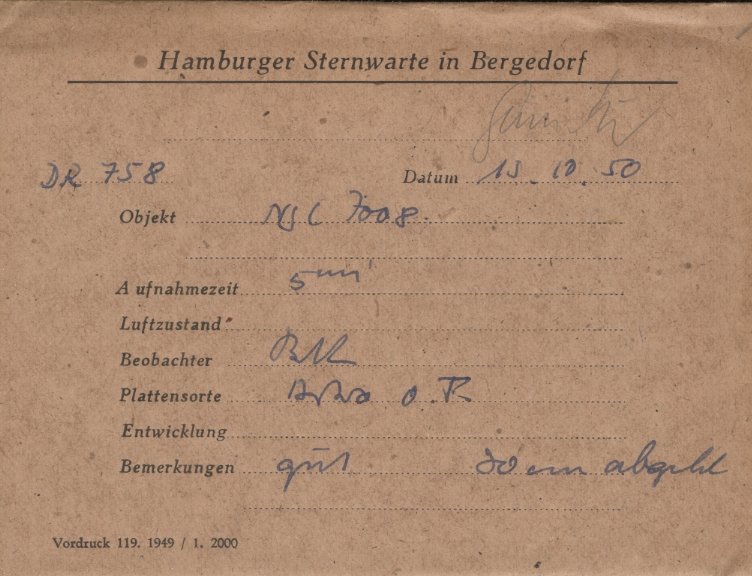 Hamburger Sternwarte in Bergedorf
DR 758 Datum 15.10.50
Objekt NGC 7008
Aufnahmezeit 5 min
Luftzustand
Beobachter
Plattensorte Astro o. R.
Entwicklung
Bemerkungen gut 30 cm abgebl
Vordruck 119. 1949 / 1. 2000